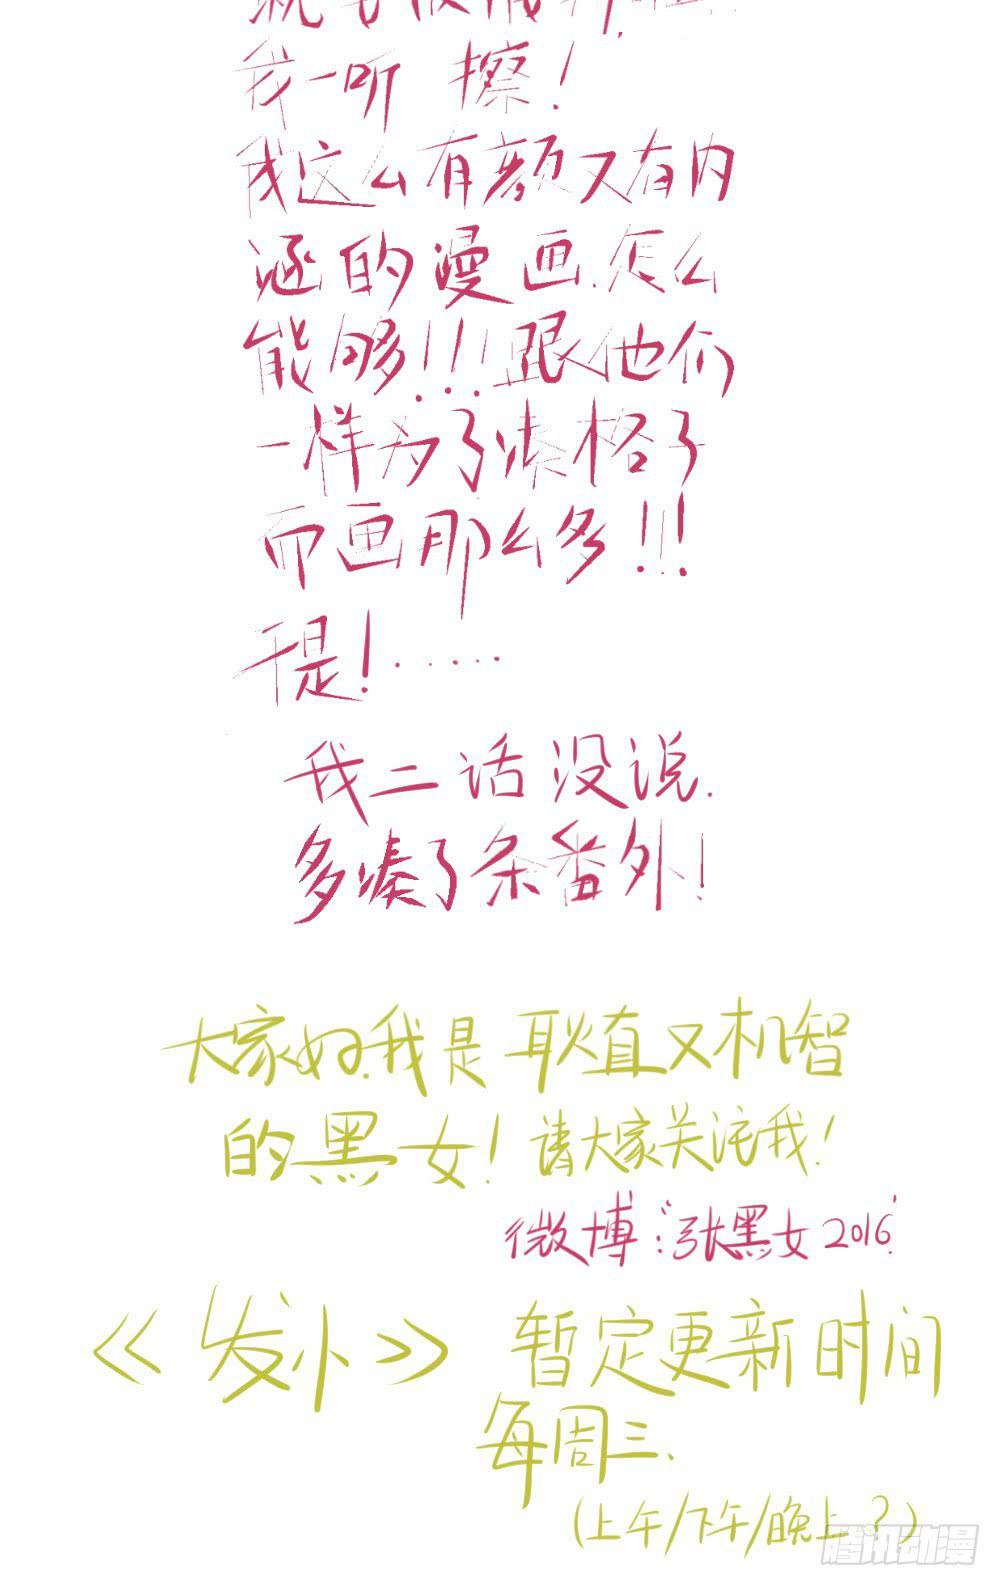 我一听 擦！
我这么有颜又有内
涵的漫画.怎么
能够！！！跟他们
一样为了凑格子
而画那么多！！
于是！.....
我二话没说.
多凑了条番外！
大家好.我是耿直又机智
的黑女！请大家关注我！
微博："张黑女2016"
《发小》暂定更新时间
每周三.
(上午/下午/晚上？)
腾讯动漫